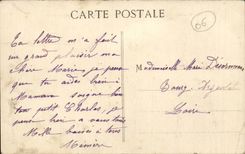 CARTE POSTALE
06
Ta lettre m'a fait
un grand plaisir ma
chère Marie je pense
que tu aides bien
Maman soigne bien
ton petit Charles je
pense bien à vous tous
Mille baisers à tous
Mademoiselle Marie
Bourg
Loire